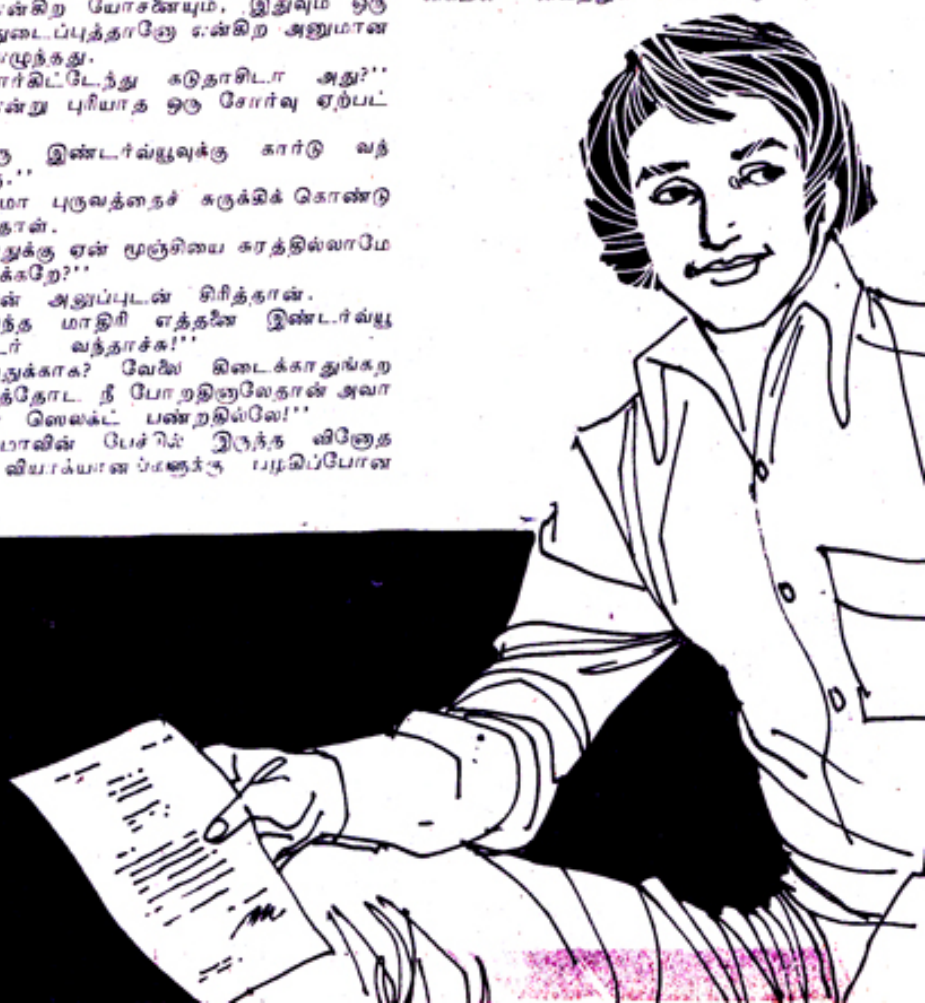 என்கிற யோசனையும், இதுவும் ஒரு
துடைப்புத்தானோ என்கிற அனுமான
யழுந்தது.
ார்கிட்டேந்து கடுதாசிடா அது?''
ன்று புரியாத ஒரு சோர்வு ஏற்பட்
ரு இண்டர்வ்யூவுக்கு கார்டு வந்
.''
மா புருவத்தைச் சுருக்கிக் கொண்டு
தாள்.
துக்கு ஏன் மூஞ்சியை சுரத்தில்லாமே
க்கறே?''
ன் அலுப்புடன் சிரித்தான்.
ந்த மாதிரி எத்தனை இண்டர்வ்யூ
டர் வந்தாச்சு!''
துக்காக? வேலை கிடைக்காதுங்கற
த்தோட நீ போறதினாலேதான் அவா
ஸெலக்ட் பண்றதில்லே!''
மாவின் பேச்சில் இருந்த வினோத
வியாக்யானங்களுக்கு பழகிப்போன